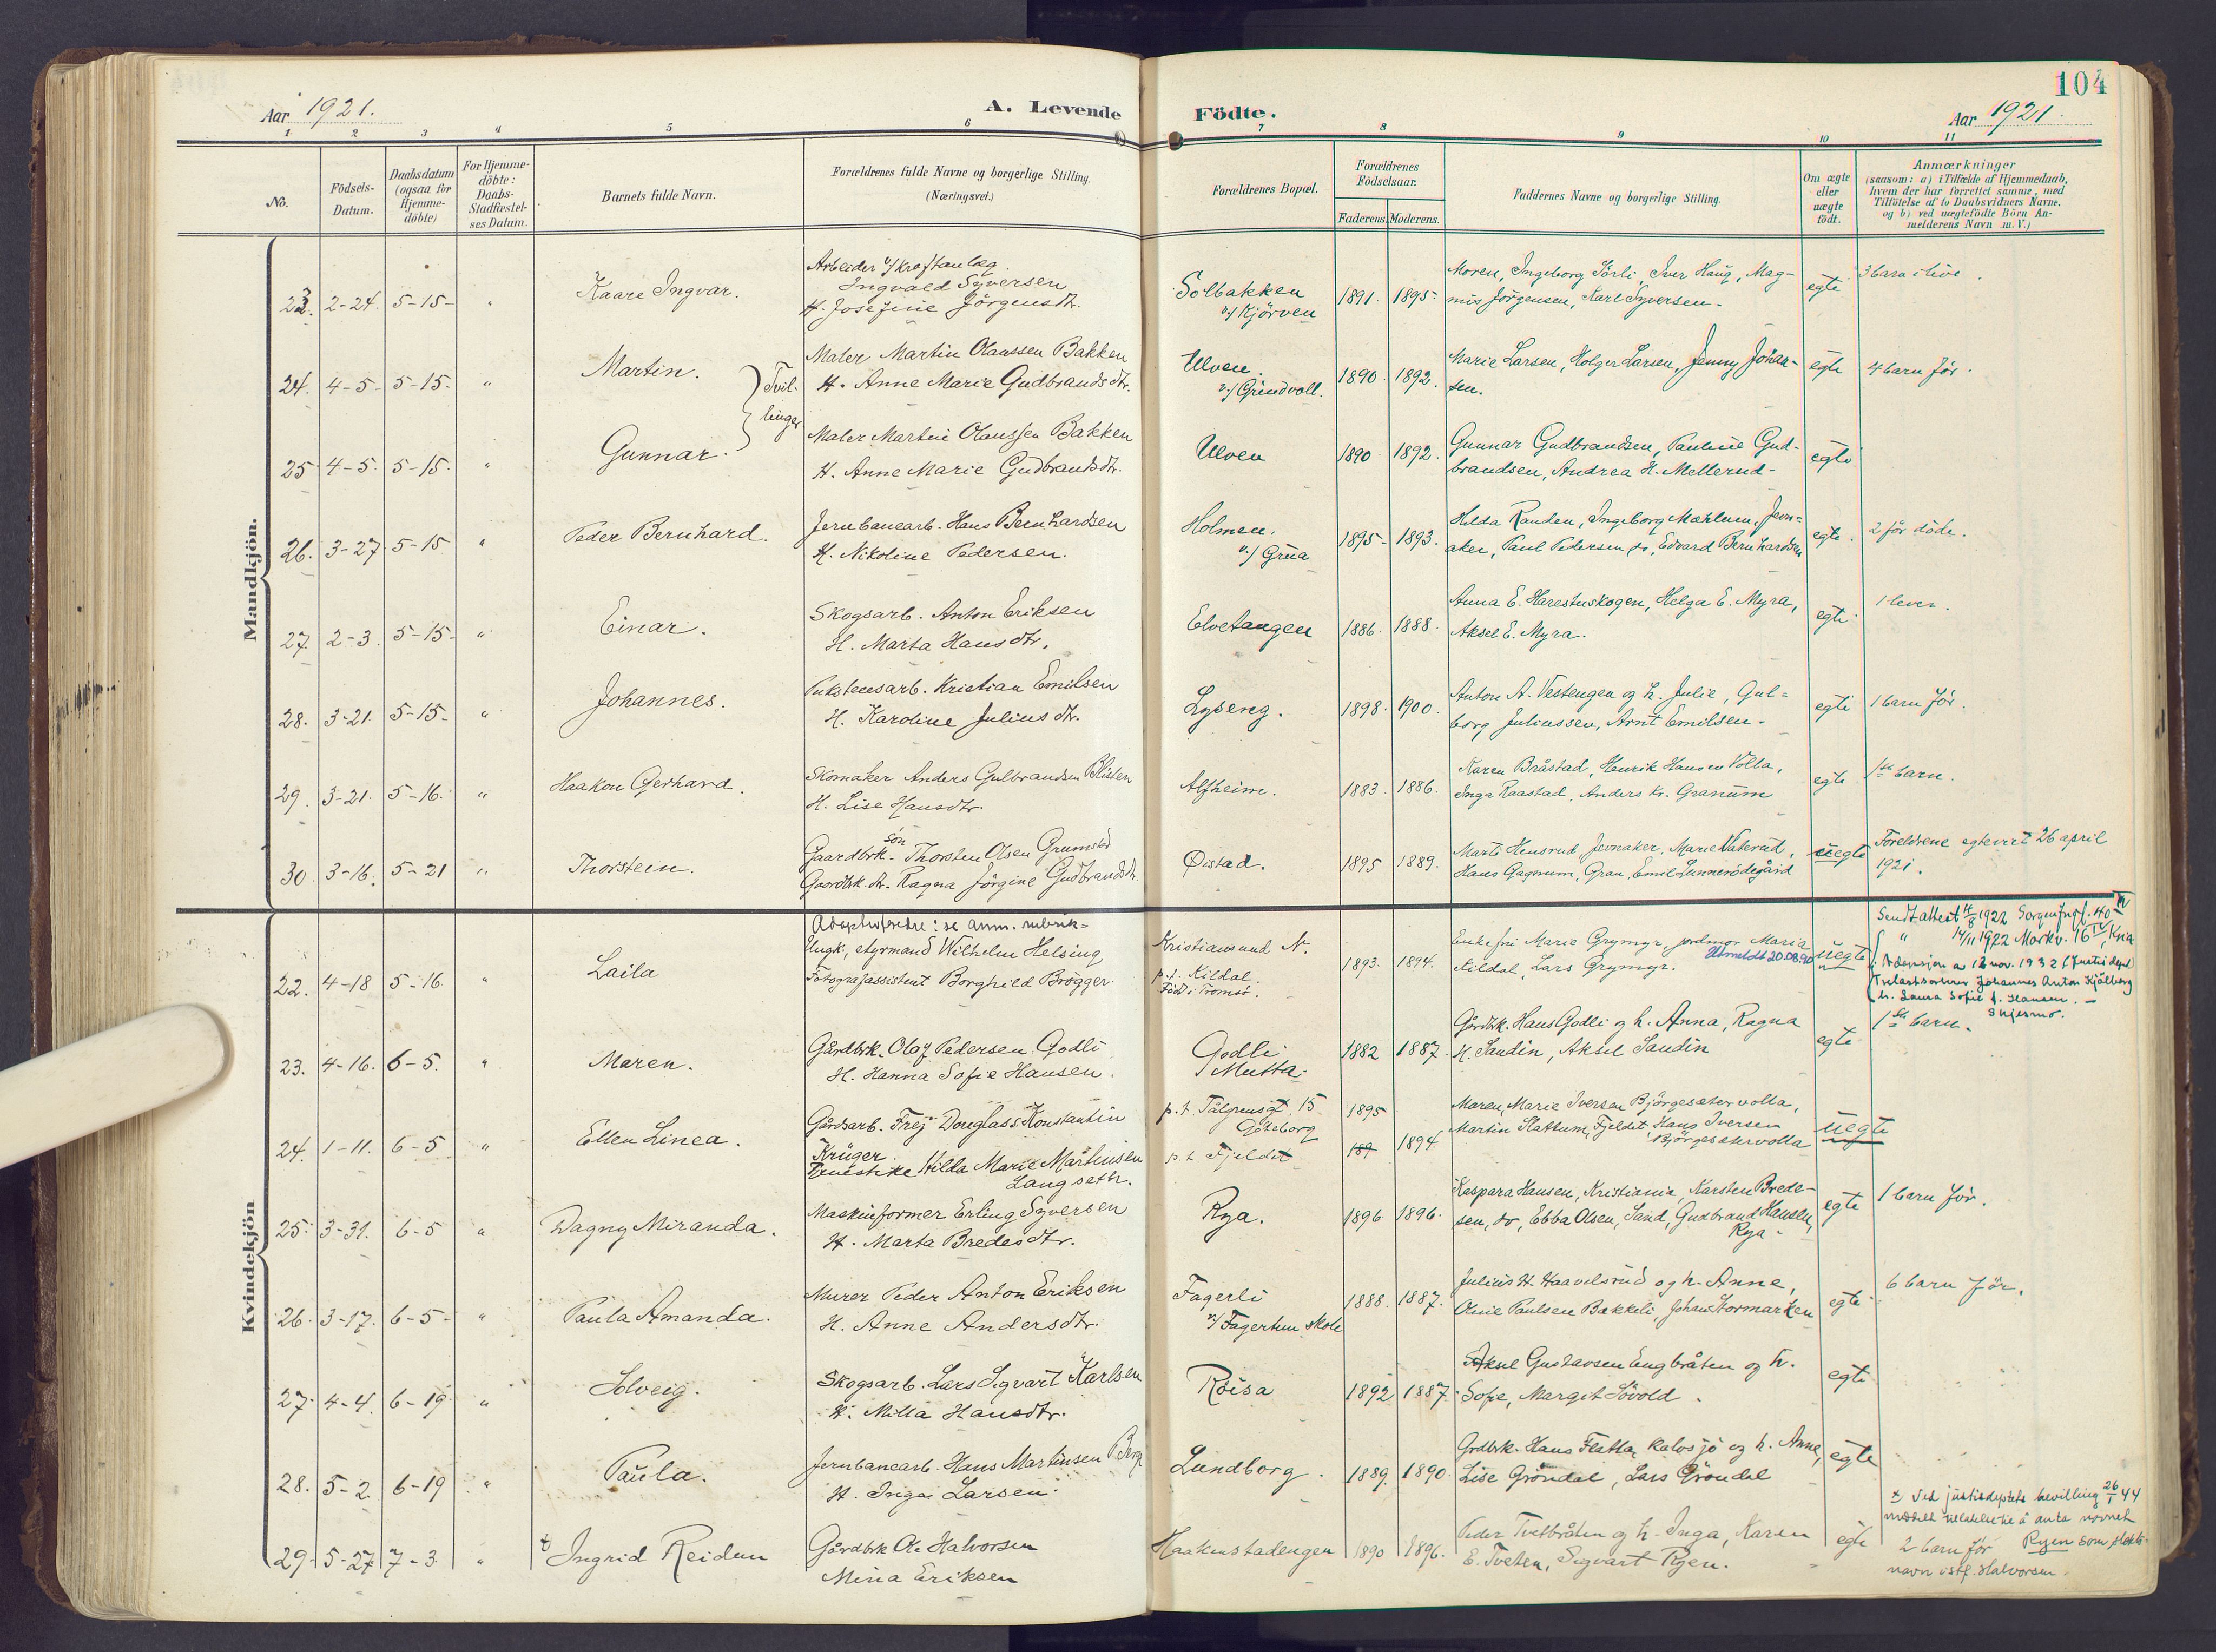 104
Aar 1921.
A. Levende Födte.
Aar 1921.
1 2 3 4 5 6 7 8 9 10 11
No.
Födsels-Datum.
Daabsdatum (ogsaa for Hjemme-döbte)
For Hjemme-döbte: Daabs-Stadfæstel-ses Datum.
Barnets fulde Navn.
Forældrenes fulde Navne og borgerlige Stilling. (Næringsvei.)
Forældrenes Bopæl.
Forældrenes Födselsaar.
Faderens. Moderens.
Faddernes Navne og borgerlige Stilling.
Om ægte eller uægte födt.
Anmærkninger
(saasom: a) i Tilfælde af Hjemmedaab,
hvem der har forrettet samme, med
Tilföielse af to Daabsvidners Navne,
og b) ved uægtefödte Börn An-
melderens Navn m. V.)
Mandkjön.
23. 2-24 5-15- " Kaare Ingvar.
Arbeider v/ Kraftanlæg
Ingvald Syversen
H. Josefine Jörgensdtr.
Solbakken
v/ Kjörven
1891. 1895-
Moren, Ingeborg Sörli, Iver Haug, Mag-
nus Jörgensen, Karl Syversen-
egte
3 barn i live.
24. 4-5- 5-15- " Martin.
Tvil-
linger
Maler Martin Olaussen Bakken
H. Anne Marie Gudbrandsdtr.
Ulven.
v/ Grindvoll.
1890. 1892.
Marie Larsen, Holger Larsen, Jenny Johan-
sen.
egte
4 barn för.
25 4-5- 5-15- " Gunnar.
Maler Martin Olaussen Bakken
H. Anne Marie Gudbrandsdtr.
Ulven
1890 1892.
Gunnar Gudbrandsen, Pauline Gud-
brandsen, Andrea H. Mellerud-
egte
26. 3-27 5-15 " Peder Bernhard.
Jernbanearb. Hans Bernhardsen
H. Nikoline Pedersen.
Holmen.
v/ Grua
1895- 1893.
Hilda Randen, Ingeborg Mæhlum, Jevn-
aker, Paul Pedersen do, Edvard Bernhardsen
egte.
2 för döde.
27. 2-3. 5-15- " Einar.
Skogsarb. Anton Eriksen
H. Marta Hansdtr.
Elvetangen
1886. 1888.
Anna E. Harestuskogen, Helga E. Myra,
Aksel E. Myra.
egte
1 lever.
28. 3-21. 5-15- " Johannes.
Pukstensarb. Kristian Emilsen
H. Karoline Juliusdtr.
Lyseng.
1898. 1900.
Anton A. Vestengen og h. Julie, Gul-
borg Juliussen, Arnt Emilsen-
egte
1 barn för.
29. 3-21. 5-16. " Haakon Gerhard.
Skomaker Anders Gulbrandsen Blisten
H. Lise Hansdtr.
Alfheim.
1883. 1886.
Karen Bråstad, Henrik Hansen Volla,
Inga Raastad, Anders Kr. Granum
egte
1ste barn.
30. 3-16. 5-21 " Thorstein.
Gaardbrk. sön Thorsten Olsen Grumstad
Gaardbk. dtr. Ragna Jörgine Gudbrandsdtr.
Øistad.
1895 1889.
Marte Hensrud Jevnaker, Marie Vaterud,
Hans Gagnum, Gran, Emil Lunnerödegård
uegte
Foreldrene egteviet 26 april
1921.
Kvindekjön
22. 4-18 5-16. " Laila
Adoptivforeldre: se anm. rubrik-
Ungk., styrmand Wilhelm Helsing
Fotografassistent Borghild Brøgger
Kristiansund N.
p.t. Kildal.
Född i Tromsö.
1893. 1894.
Enkefru Marie Grymyr, jordmor Maria
Kildal, Lars Grymyr. Utmeldt 20.08.90
uegte
Sendt attest 14/8 1922 Sorgenfrigt. 40
" 14/11 1922 Markv. 16 IV, Kria
Adopsjon a 12 nov. 1932 (Justisdept)
Trelasthandler Johannes Anton Kjölberg
h. Laura Sofie f. Hansen. -
Skjesmo.
23. 4-16. 6-5. " Maren.
Gårdbrk. Olaf Pedersen Godli
H. Hanna Sofie Hansen.
Godli
Mutta.
1882 1887.
Gårdbk. Hans Godli og h. Anna, Ragna
H. Sandin, Aksel Sandin
egte
1ste barn.
24. 1-11. 6-5 " Ellen Linea.
Gårdsarb. Frej Douglass Konstantin
Krüger
Hilda Marie Martinsen
Langseth.
p.t. 15
Göteborg
p.t. Fjeldet
1895
1894
Maren, Marie Iversen Björgesetervolla,
Martin Slattum, Fjeldet, Hans Iversen
Björgesetervolla
uegte
25. 3-31. 6-5 " Dagny Miranda.
Maskinformer Erling Syversen
H. Marta Bredesdtr.
Rya.
1896 1896.
Kaspara Hansen, Kristiania, Karsten Brede-
sen, do, Ebba Olsen, Sand, Gudbrand Hansen,
Rya-
egte
1 barn för.
26. 3-17. 6-5- " Paula Amanda.
Murer Peder Anton Eriksen
H. Anne Andersdtr.
Fagerli
v/ Fagertun skole
1888. 1887.
Julius H. Haavelsrud og h. Anne,
Oline Paulsen Bakkeli, Johan Stormarken
egte
6 barn för.
27. 4-4. 6-19 " Solveig.
Skogsarb. Lars Sigvart Karlsen
H. Milla Hansdtr.
Röisa
1892 1887.
Aksel Gustavsen Engbråten og h.
Sofie, Margit Sövold.
egte
28. 5-2. 6-19 " Paula.
Jernbanearb. Hans Martinsen Berg
H. Inga Larsen.
Lundborg.
1889. 1890
Grdbrk. Hans Flatla, Kalvsjö og h. Anne,
Lise Gröndal, Lars Gröndal
egte
29. 5-27 7-3 " Ingrid Reidun
Gårdbrk Ole Halvorsen
Mina Eriksen
Haakenstadengen
1890 1896.
Peder Tvetbråten og h. Inga, Karen
E. Tveten, Sigvart Ryen.
egte
Ved justisdeptets bevilling 26/1 44
meddelt tillatelse til å anta navnet
2 barn för Ryen som slekts-
navn istf. Halvorsen.